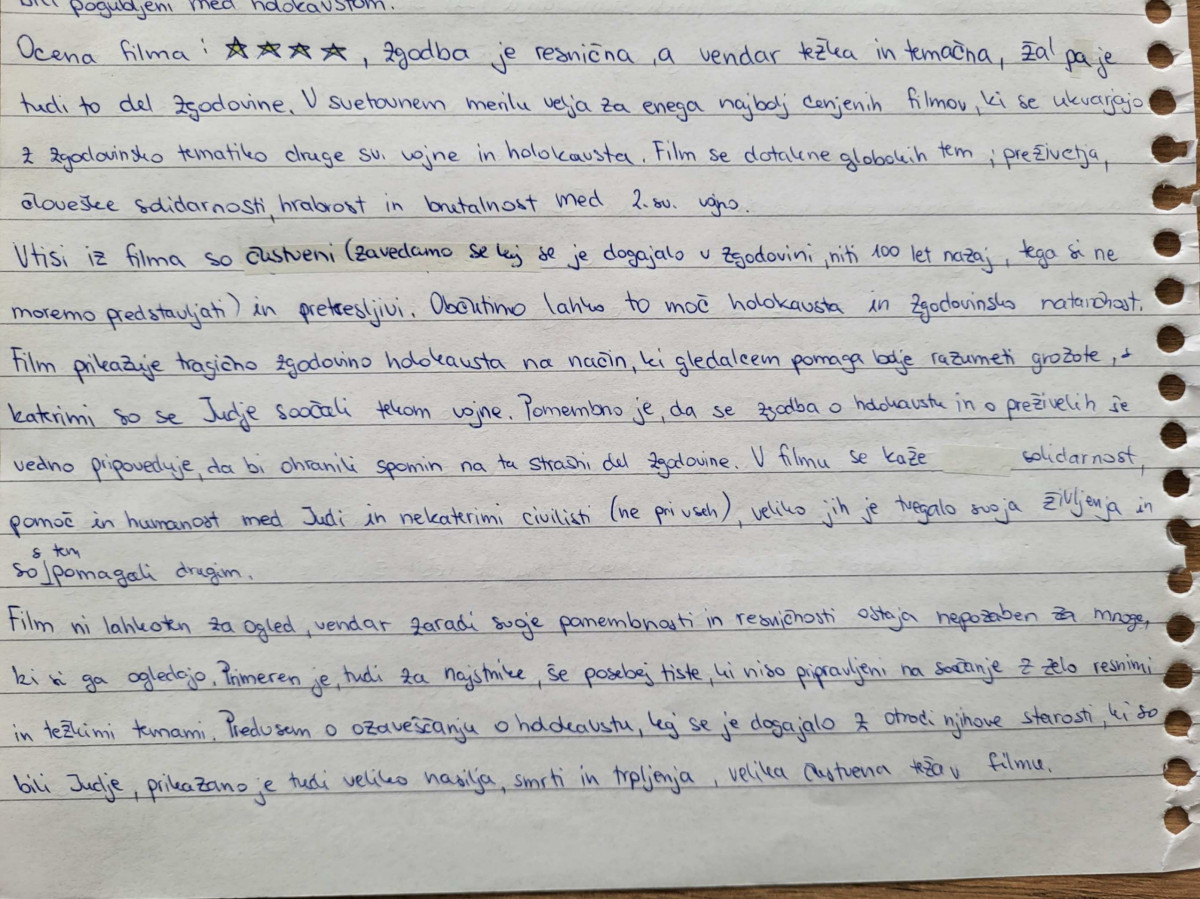 bili pogubljeni med holokavstom.
Ocena filma: ☆☆☆☆, zgodba je resnična, a vendar težka in temačna, žal pa je
tudi to del zgodovine. V svetovnem merilu velja za enega najbolj cenjenih filmov, ki se ukvarjajo
z zgodovinsko tematiko druge sv. vojne in holokavsta. Film se dotakne globokih tem; preživetja,
človeške solidarnosti, hrabrost in brutalnost med 2. sv. vojno.
Vtisi iz filma so čustveni (zavedamo se kaj se je dogajalo v zgodovini, niti 100 let nazaj, tega si ne
moremo predstavljati) in pretresljivi. Občutimo lahko to moč holokavsta in zgodovinsko natančnost.
Film prikazuje tragično zgodovino holokavsta na način, ki gledalcem pomaga bolje razumeti grozote, s
katerimi so se Judje soočali tekom vojne. Pomembno je, da se zgodba o holokavstu in o preživelih še
vedno pripoveduje, da bi ohranili spomin na ta strašni del zgodovine. V filmu se kaže solidarnost,
pomoč in humanost med Judi in nekaterimi civilisti (ne pri vseh), veliko jih je tvegalo svoja življenja in
so s tem pomagali drugim.
Film ni lahkoten za ogled, vendar zaradi svoje pomembnosti in resničnosti ostaja nepozaben za mnoge,
ki si ga ogledajo. Primeren je, tudi za najstnike, še posebej tiste, ki niso pripravljeni na soočanje z zelo resnimi
in težkimi temami. Predvsem o ozaveščanju o holokavstu, kaj se je dogajalo z otroci njihove starosti, ki so
bili Judje, prikazano je tudi veliko nasilja, smrti in trpljenja, velika čustvena teža v filmu.